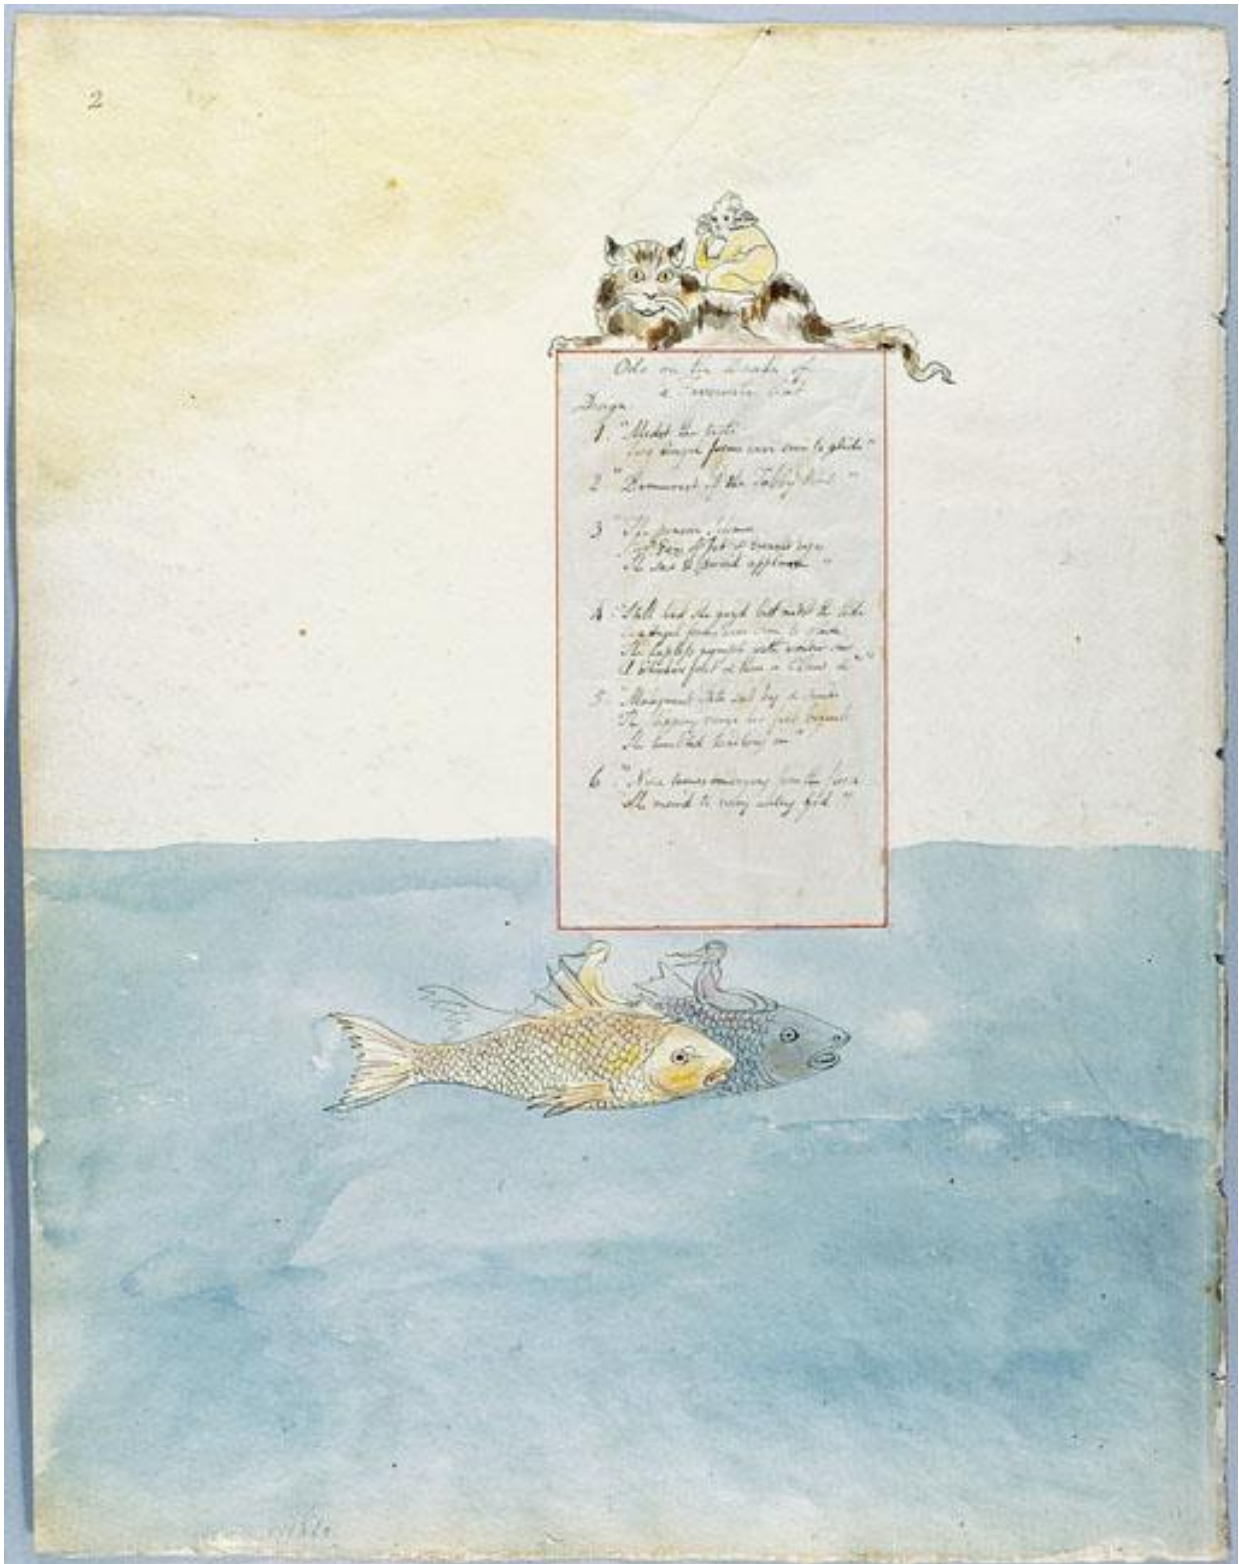 2
Ode on the Death of
a Favourite Cat
Design
1 "Midst the tide
Two angel forms were seen to glide"
2 "Demurest of the Tabby kind"
3 "The pensive Selima
Her Ears of Jet & Emrald eyes
She saw & purr'd applause"
4 "Still had she gazd but midst the tide
Two Angel forms were seen to
The hapless nymph with wonder saw
A Whisker first & then a Claw &c"
5 "Malignant Fate sat by & smild
The slippery verge her feet beguild
She tumbled headlong in"
6 "Nine times emerging from the flood
She mewd to every watry god"